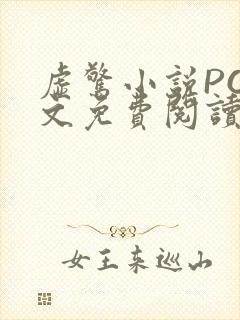 虛驚小說PO
文免費閱讀
女王來巡山